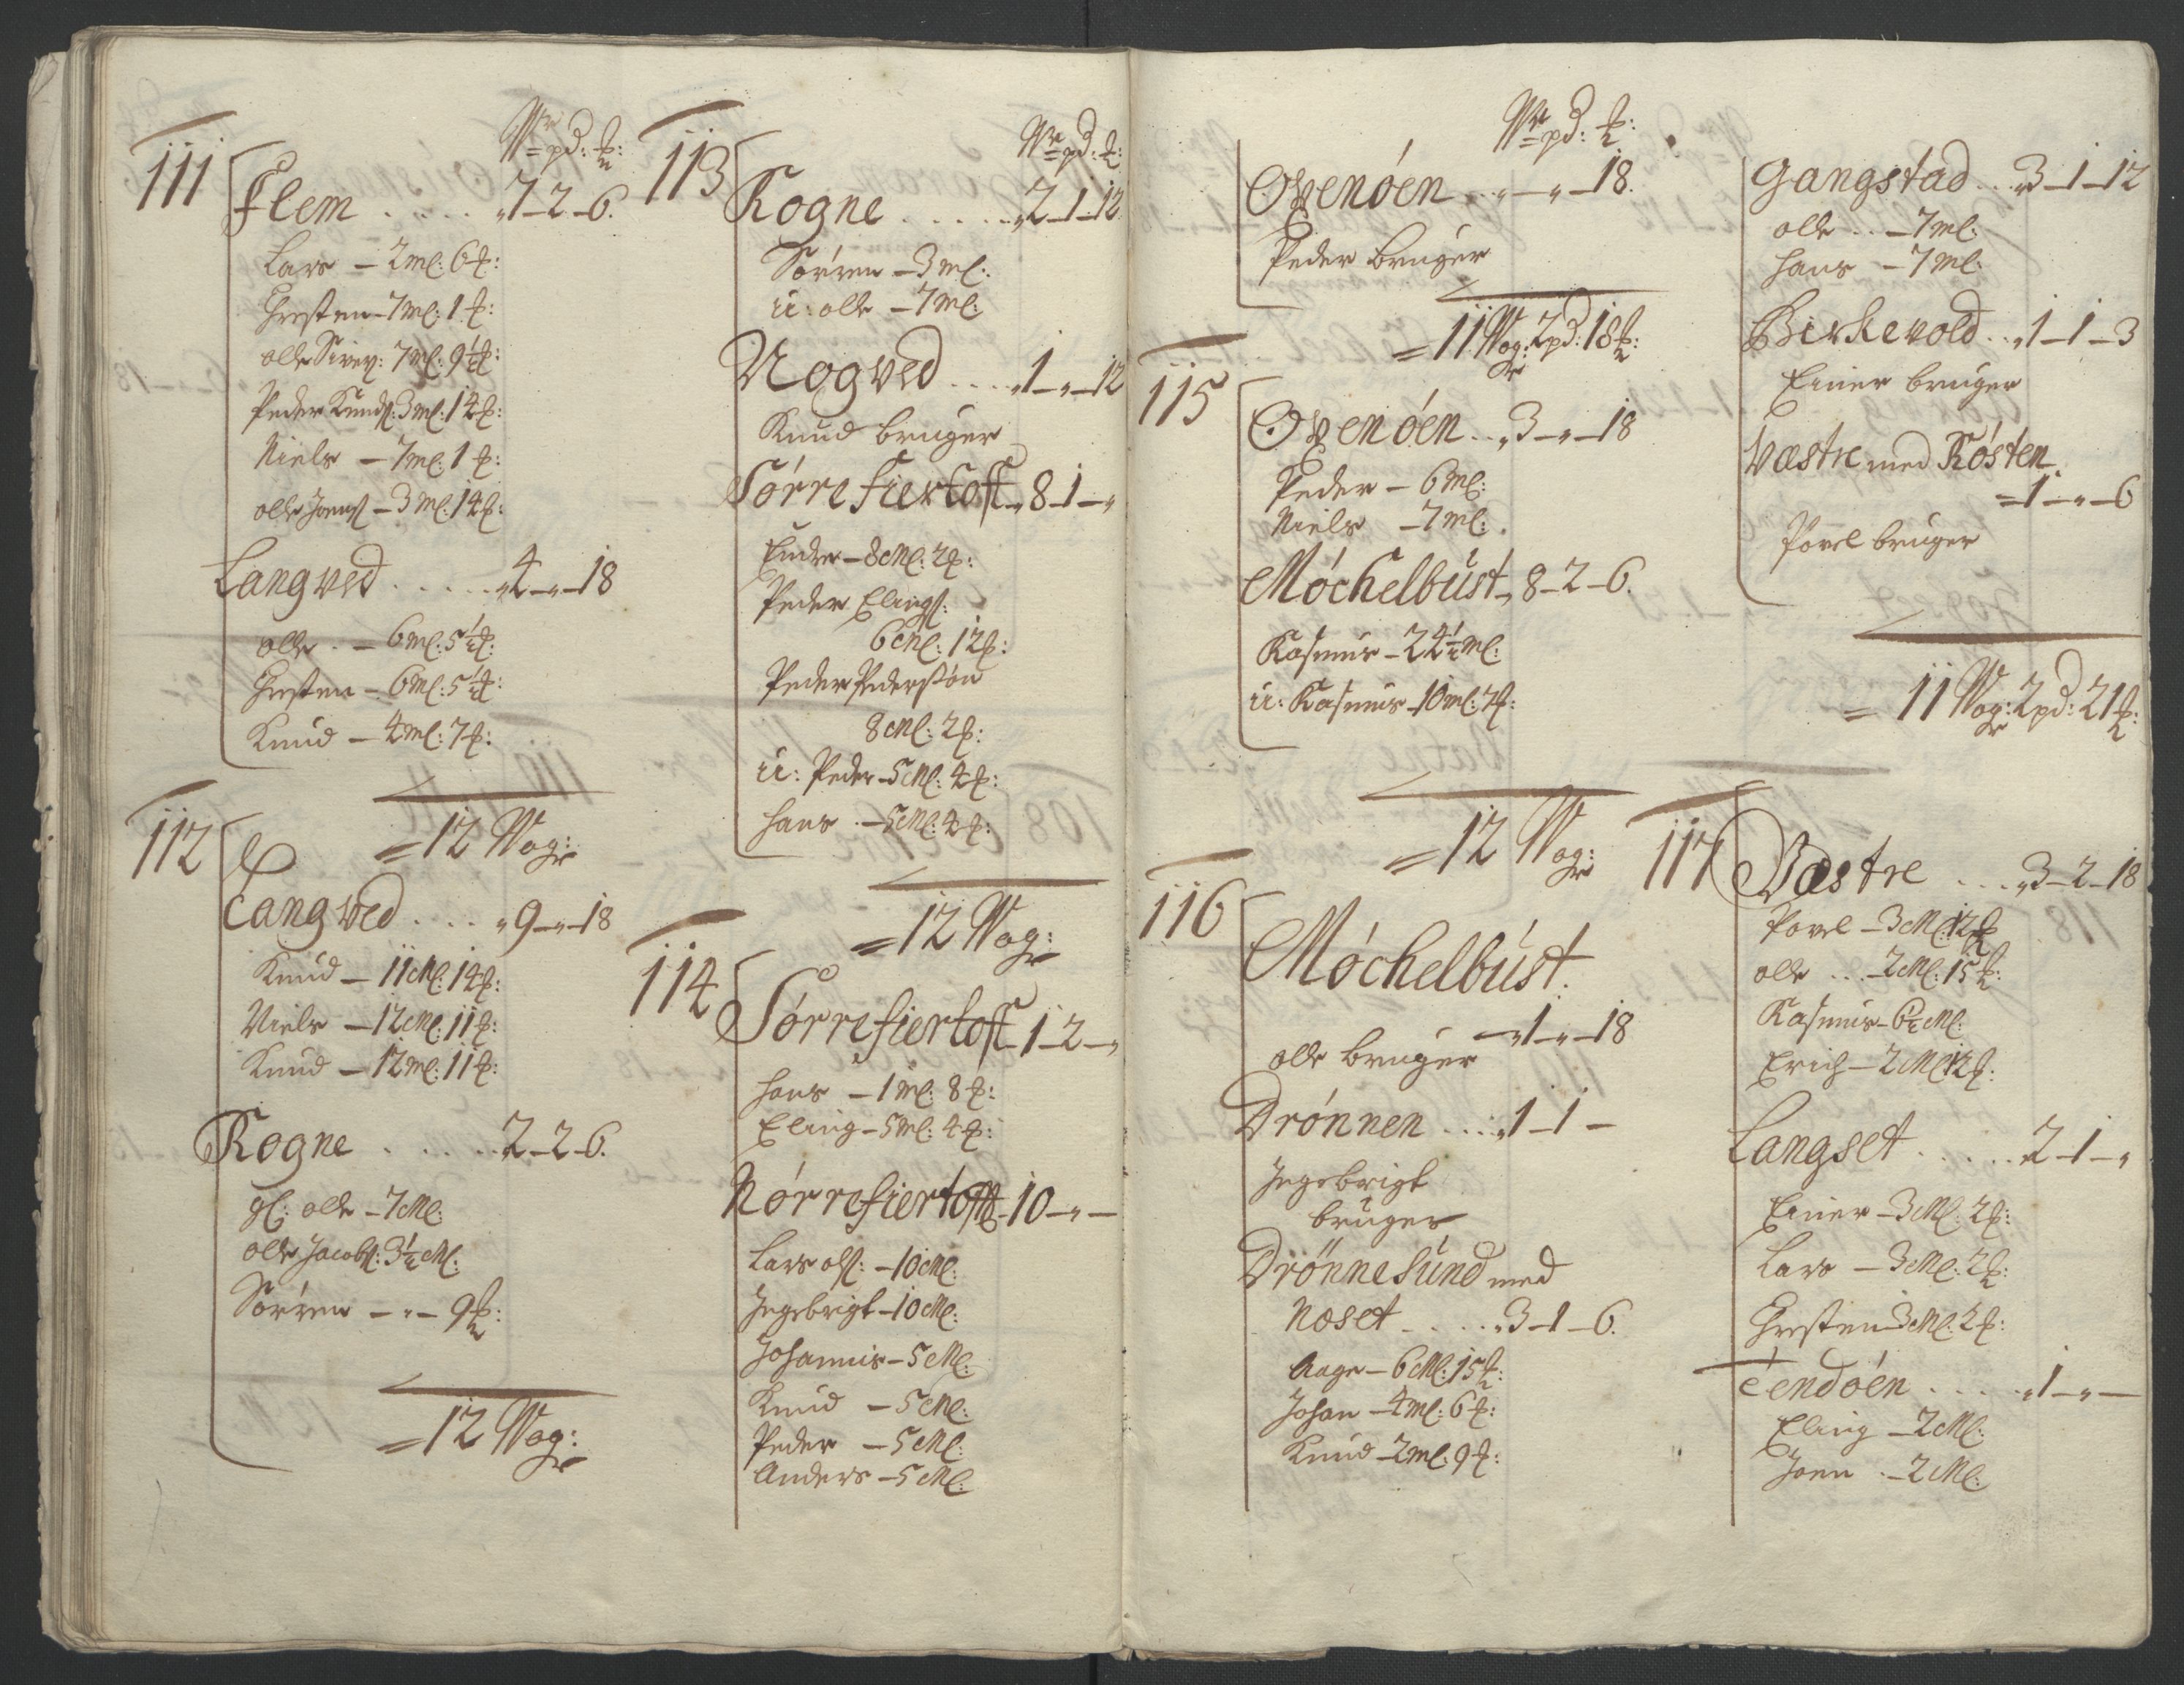 Wr pd: ℔:
111
Flem . . . . . „7–2–6.
Lars – 2 ml: 6 ℔:
Christen – 7 ml: 1 ℔:
olle Siver: 7 ml: 9½ ℔:
Peder Knuds: 3 ml: 14 ℔:
Niels – 7 ml: 1 ℔:
olle Joens – 3 ml: 14 ℔:
Langved . . . . . „4–„–18
olle . – 6 ml: 5½ ℔:
Christen – 6 ml: 5½ ℔:
Knud – 4 ml: 7 ℔:
= 12 Wog:
112
Langved . . . . „9–„–18
Knud – 11 Ml: 14 ℔:
Niels – 12 Ml: 11 ℔:
Knud – 12 ml: 11 ℔:
Rogne . . . . . 2–2–6.
gl: olle – 7 Ml:
olle Jacobs: 3½ Ml:
Sörren – „ – 9 ℔:
= 12 Wog:
Wr pd: ℔:
113
Rogne . . . . . „2–1–12
Sörren – 3 ml:
u: olle – 7 ml:
Nogved . . . . „1–„–12
Knud bruger
Sórrefiertoft „8–1–„
Endre – 8 Ml: 2 ℔:
Peder Elings:
6 Ml: 12 ℔:
Peder Pedersön
8 Ml: 2 ℔:
u: Peder – 5 Ml: 4 ℔:
hans . – 5 Ml: 4 ℔:
= 12 Wog:
114
Sórrefiertoft – 1–2–„
hans – 1 ml: 8 ℔:
Eling – 5 ml: 4 ℔:
Nórrefiertoft – 10–„–
Lars ols: – 10 Ml:
Ingebrigt – 10 Ml:
Johannis – 5 Ml:
Knud – 5 Ml:
Peder – 5 Ml:
Anders – 5 Ml:
Wr pd: ℔:
Oxenóen . . „–„–18.
Peder bruger
= 11 Wog: 2 pd: 18 ℔:
115
Oxenóen . . „3–„–18
Peder – 6 ml:
Niels – 7 ml:
Móchelbúst „8–2–6.
Rasmus – 24½ ml:
u: Rasmus – 10 ml: 7 ℔:
= 12 Wog:
116
Móchelbúst.
– „1–„–18
olle bruger
Drónnen . . . „1–1–
Ingebrigt
bruger
Drönnesund med
Noset . . . . . „3–1–6.
Aage – 6 Ml: 15 ℔:
Johan – 4 ml: 6 ℔:
Knud – 2 ml: 9 ℔:
Gangstad . . . „3–1–12
olle . . – 7 ml:
hans – 7 ml:
Birkevold . . „1–1–3
Einer bruger
Væstre med Rósten.
= 1–„–6
Povel bruger
= 11 Wog: 2 pd: 21 ℔:
117
Væstre . . . . „3–2–18
Povel – 3 Ml: 12 ℔
olle . . – 2 Ml: 15 ℔:
Rasmus – 6½ Ml:
Erich – 2 Ml: 12 ℔:
Langset . . . . . 2–1–„
Einer – 3 Ml: 2 ℔:
Lars – 3 Ml: 2 ℔:
Christen – 3 Ml: 2 ℔:
Téndóén . . . . . „1–„–
Eling – 2 Ml:
Joen . – 2 Ml: